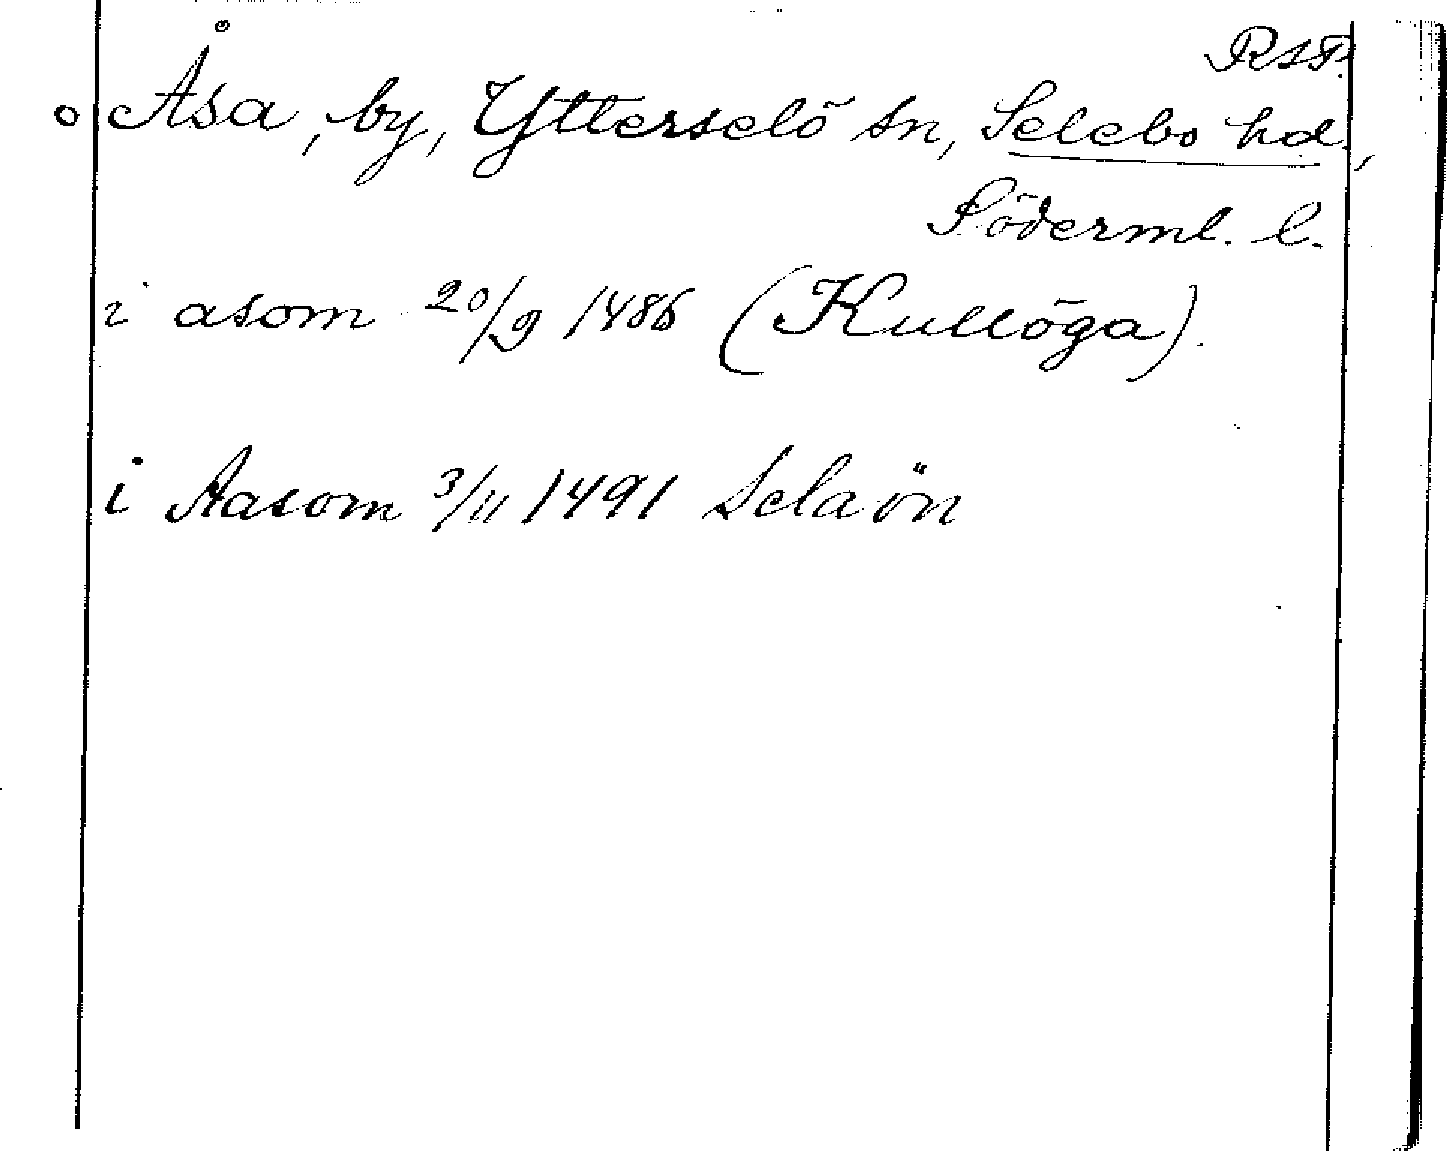 RSP.
Åsa, by, Ytterselö sn, Selebo hd.,
Söderml. l.
i asom 20/9 1486 (Kullöga).
i Aasom 3/11 1491 Selaön